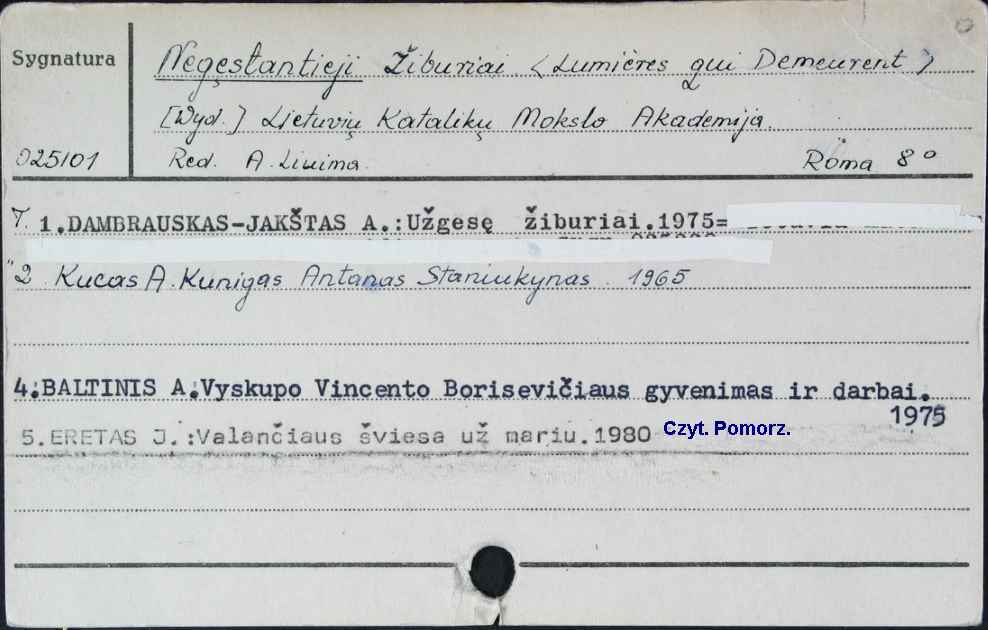 Sygnatura
Negęstantieji Žiburiai <Lumières qui Demeurent>
[Wyd.] Lietuvių Katalikų Mokslo Akademija.
025101 Red. A. Liuima. Roma 8°
T. 1.DAMBRAUSKAS-JAKŠTAS A.:Užgesę žiburiai.1975=
"2 Kucas A. Kunigas Antanas Staniukynas. 1965
4.BALTINIS A.Vyskupo Vincento Borisevičiaus gyvenimas ir darbai.
1975
5.ERETAS J.:Valančiaus šviesa už mariu.1980 Czyt. Pomorz.